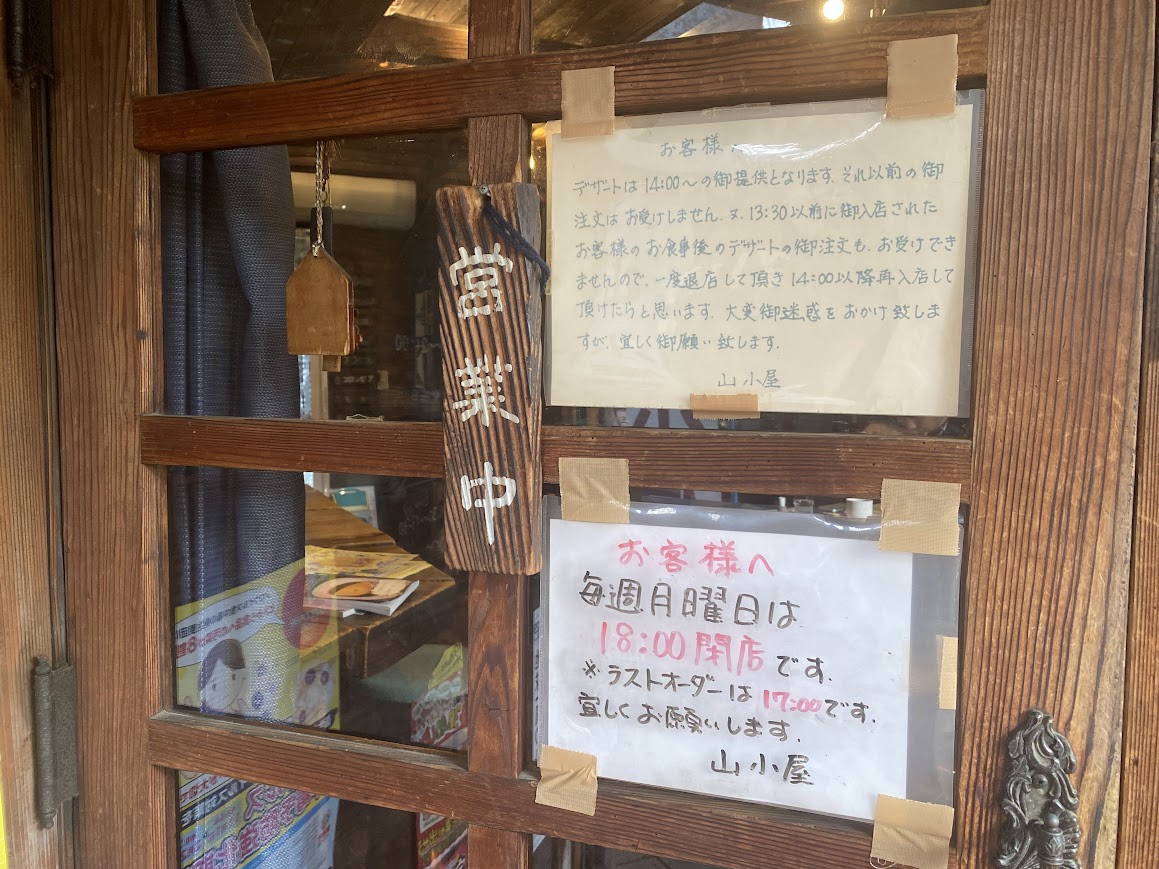 お客様へ
デザートは14:00〜の御提供となります。それ以前の御
注文はお受けしません。又、13:30以前に御入店された
お客様のお食事後のデザートの御注文も、お受けでき
ませんので、一度退店して頂き14:00以降再入店して
頂けたらと思います。大変御迷惑をおかけ致しま
すが、宜しく御願い致します。
山小屋
営業中
お客様へ
毎週月曜日は
18:00閉店です。
※ラストオーダーは17:00です。
宜しくお願いします。
山小屋